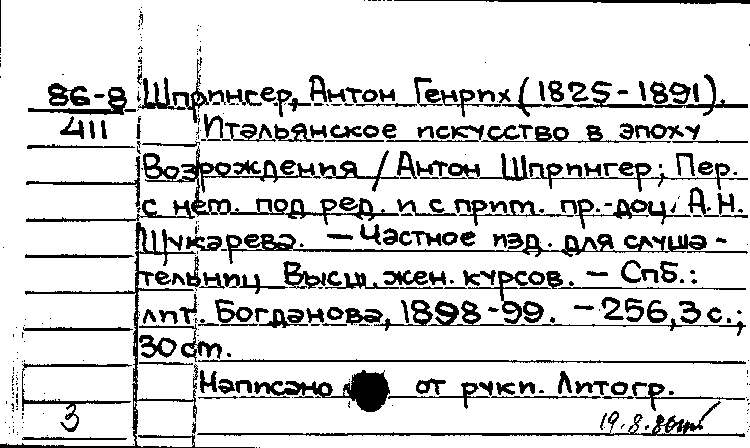 86-8 Шпрингер, Антон Генрих (1825-1891).
411 Итальянское искусство в эпоху
Возрождения / Антон Шпрингер; Пер.
с нем. под ред. и с прим. пр.-доц. А.Н.
Щукарева. — Частное изд. для слуша-
тельниц Высш. жен. курсов. — СПб.:
лит. Богданова, 1898-99. — 256, 3 с.;
30 см.
Написано от руки. Литогр.
3 19.8.86